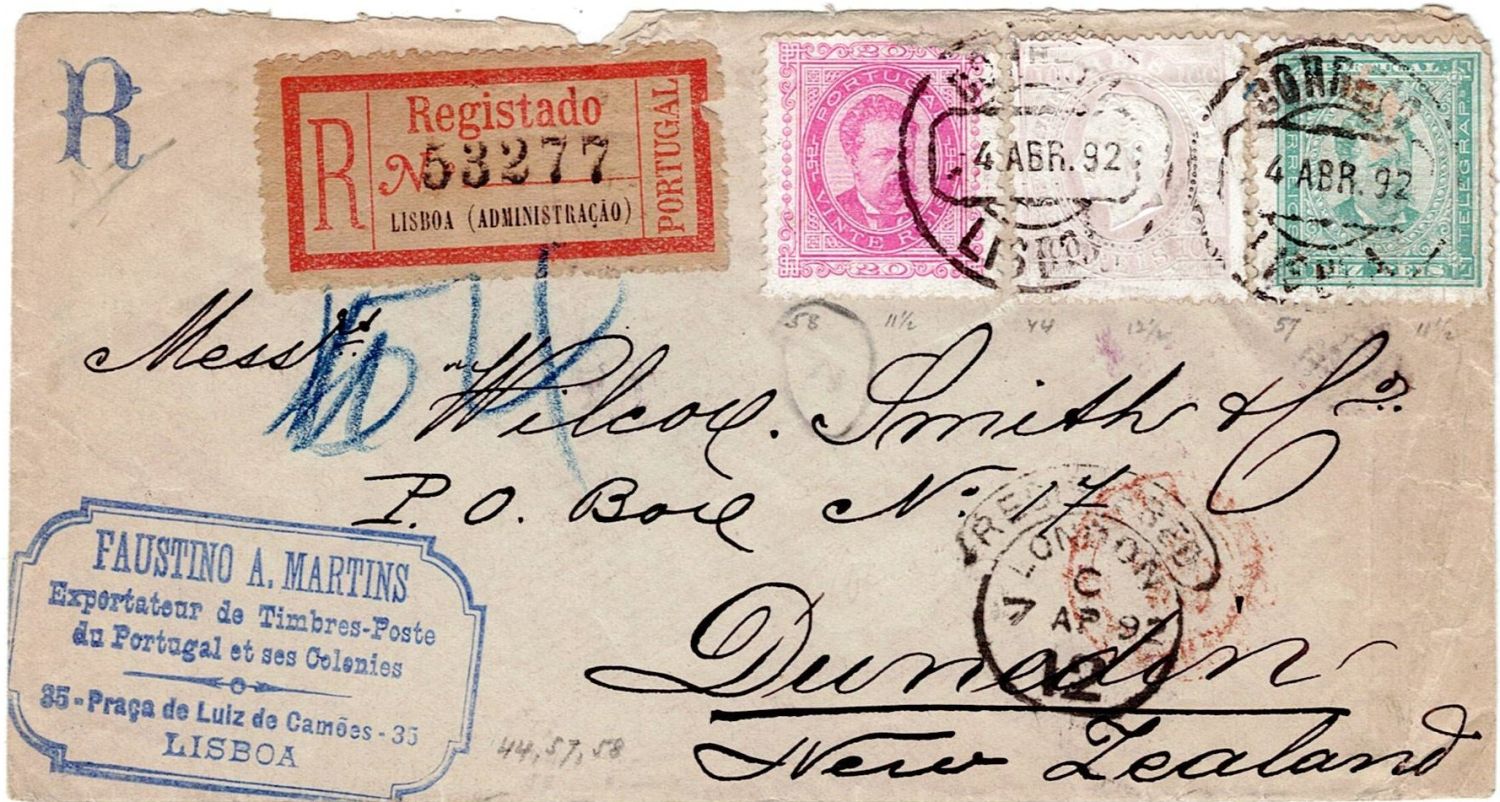 R
R
Registado
No 53277
LISBOA (ADMINISTRAÇÃO)
PORTUGAL
20 20
PORTUGAL
VINTE REIS
20
CORREIO
4 ABR. 92
LISBOA
CORREIO
4 ABR. 92
LISBOA
58 11½ 44 12½ 57 11½
Messrs. Wilcox. Smith & Co.
P. O. Box No. 17
Dunedin
New Zealand
REGISTERED
LONDON
C
7 AP 92
12
FAUSTINO A. MARTINS
Exportateur de Timbres-Poste
du Portugal et ses Colonies
35-Praça de Luiz de Camões-35
LISBOA
44, 57, 58